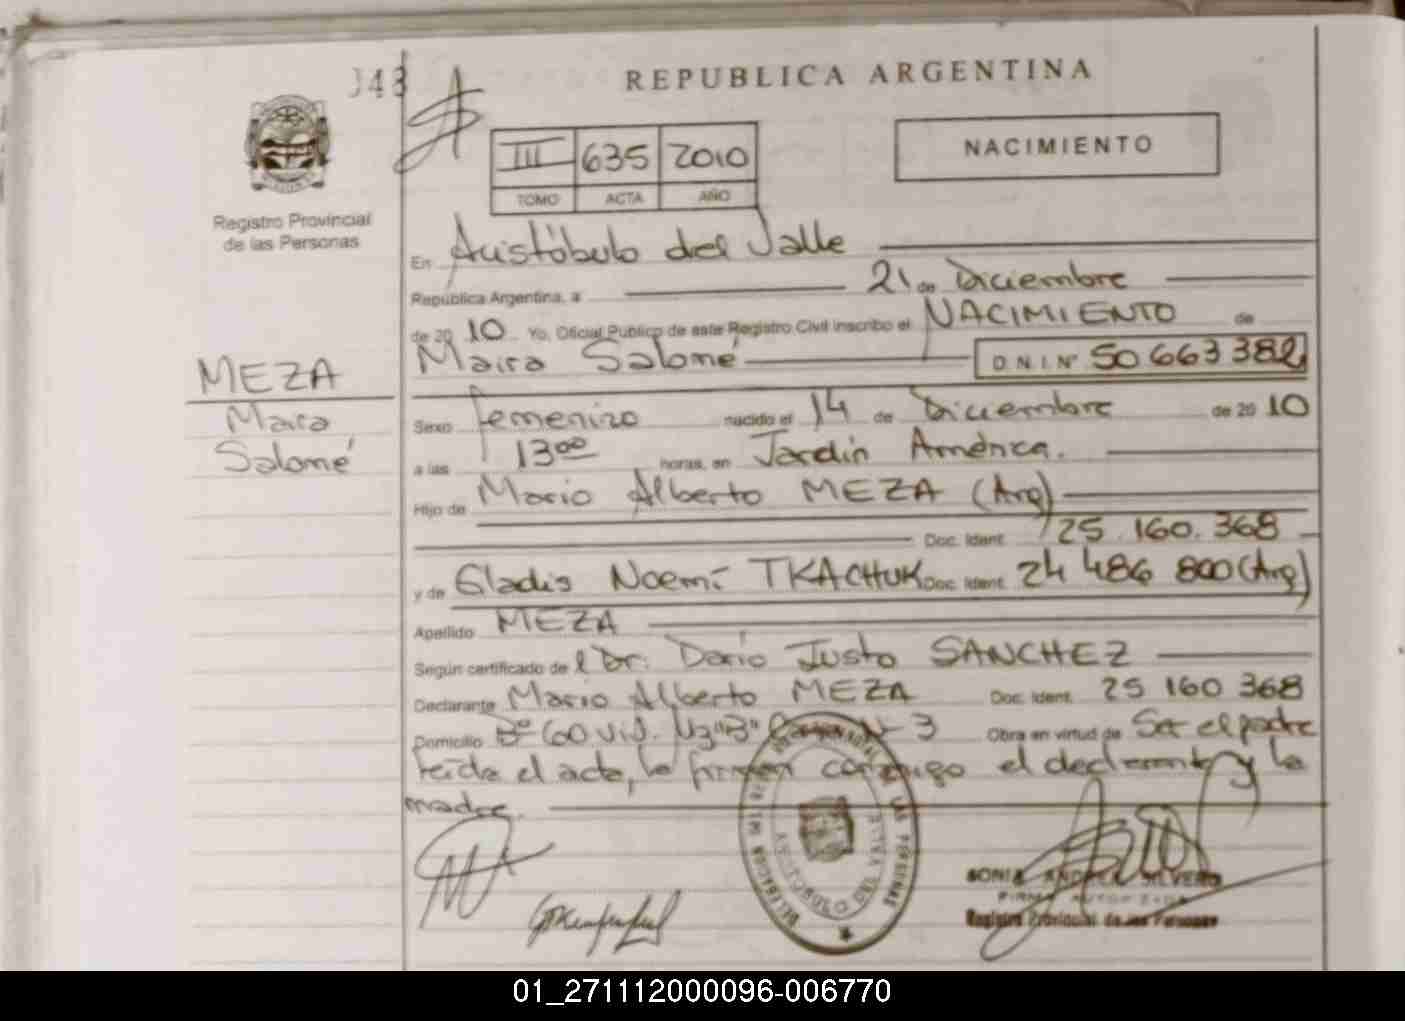 REPUBLICA ARGENTINA
III 635 2010
TOMO ACTA AÑO
NACIMIENTO
Registro Provincial
de las Personas
En Aristóbulo del Valle
República Argentina, a 21 de Diciembre
de 20 10 Yo, Oficial Público de este Registro Civil inscribo el NACIMIENTO de
Maira Salomé D.N.I.Nº 50 663 382
MEZA
Maira
Salomé
Sexo femenino nacido el 14 de Diciembre de 20 10
a las 13 00 horas, en Jardín América.
Hijo de Mario Alberto MEZA (Arg)
Doc. Ident. 25.160.368
y de Gladis Noemí TKACHUK Doc. Ident. 24 486 800 (Arg)
Apellido MEZA
Según certificado de l Dr. Darío Justo SANCHEZ
Declarante Mario Alberto MEZA Doc. Ident. 25 160 368
Domicilio Bº 60 Viv. Mz "B" Nº 3 Obra en virtud de Ser el padre
leída el acta, la firman conmigo el declarante y la
madre.
DELEGACION PROVINCIAL DE LAS PERSONAS
ARISTOBULO DEL VALLE
SONIA ANDREA SILVERO
FIRMA AUTORIZADA
Registro Provincial de las Personas
01_271112000096-006770